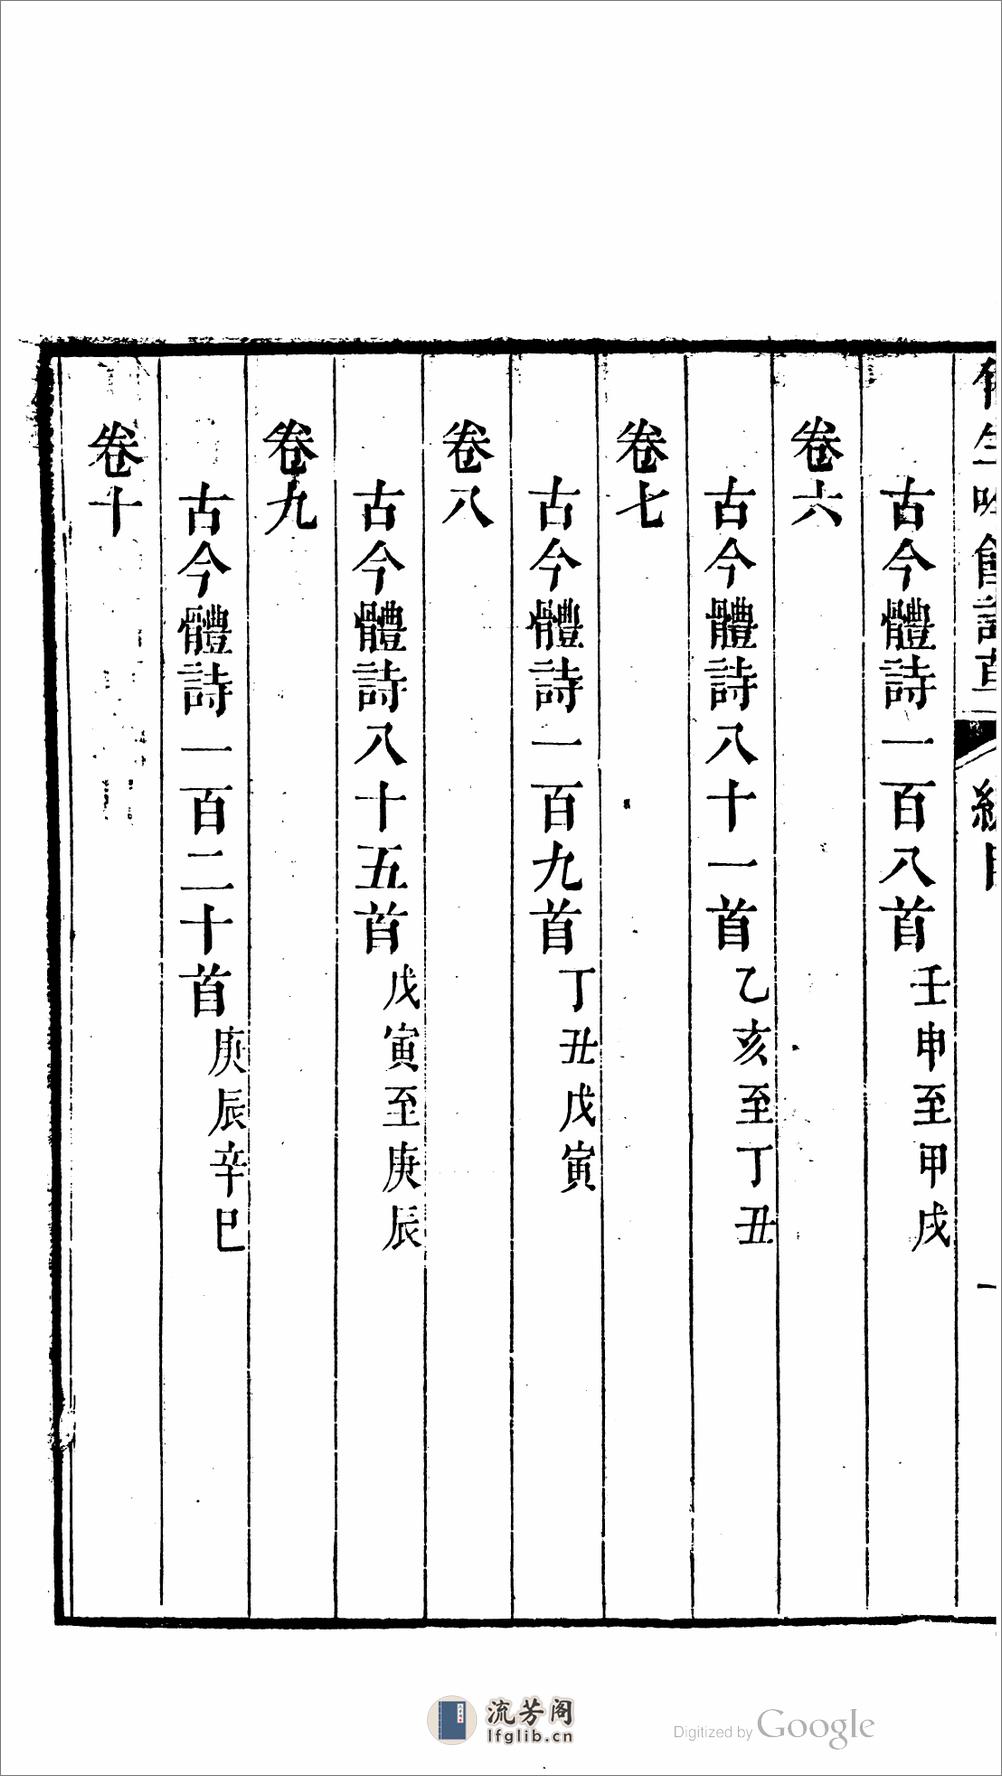 古今體詩一百八首壬申至甲戌
卷六
古今體詩八十一首乙亥至丁丑
卷七
古今體詩一百九首丁丑戊寅
卷八
古今體詩八十五首戊寅至庚辰
卷九
古今體詩一百二十首庚辰辛巳
卷十
流芳阁
lfglib.cn
Digitized by Google